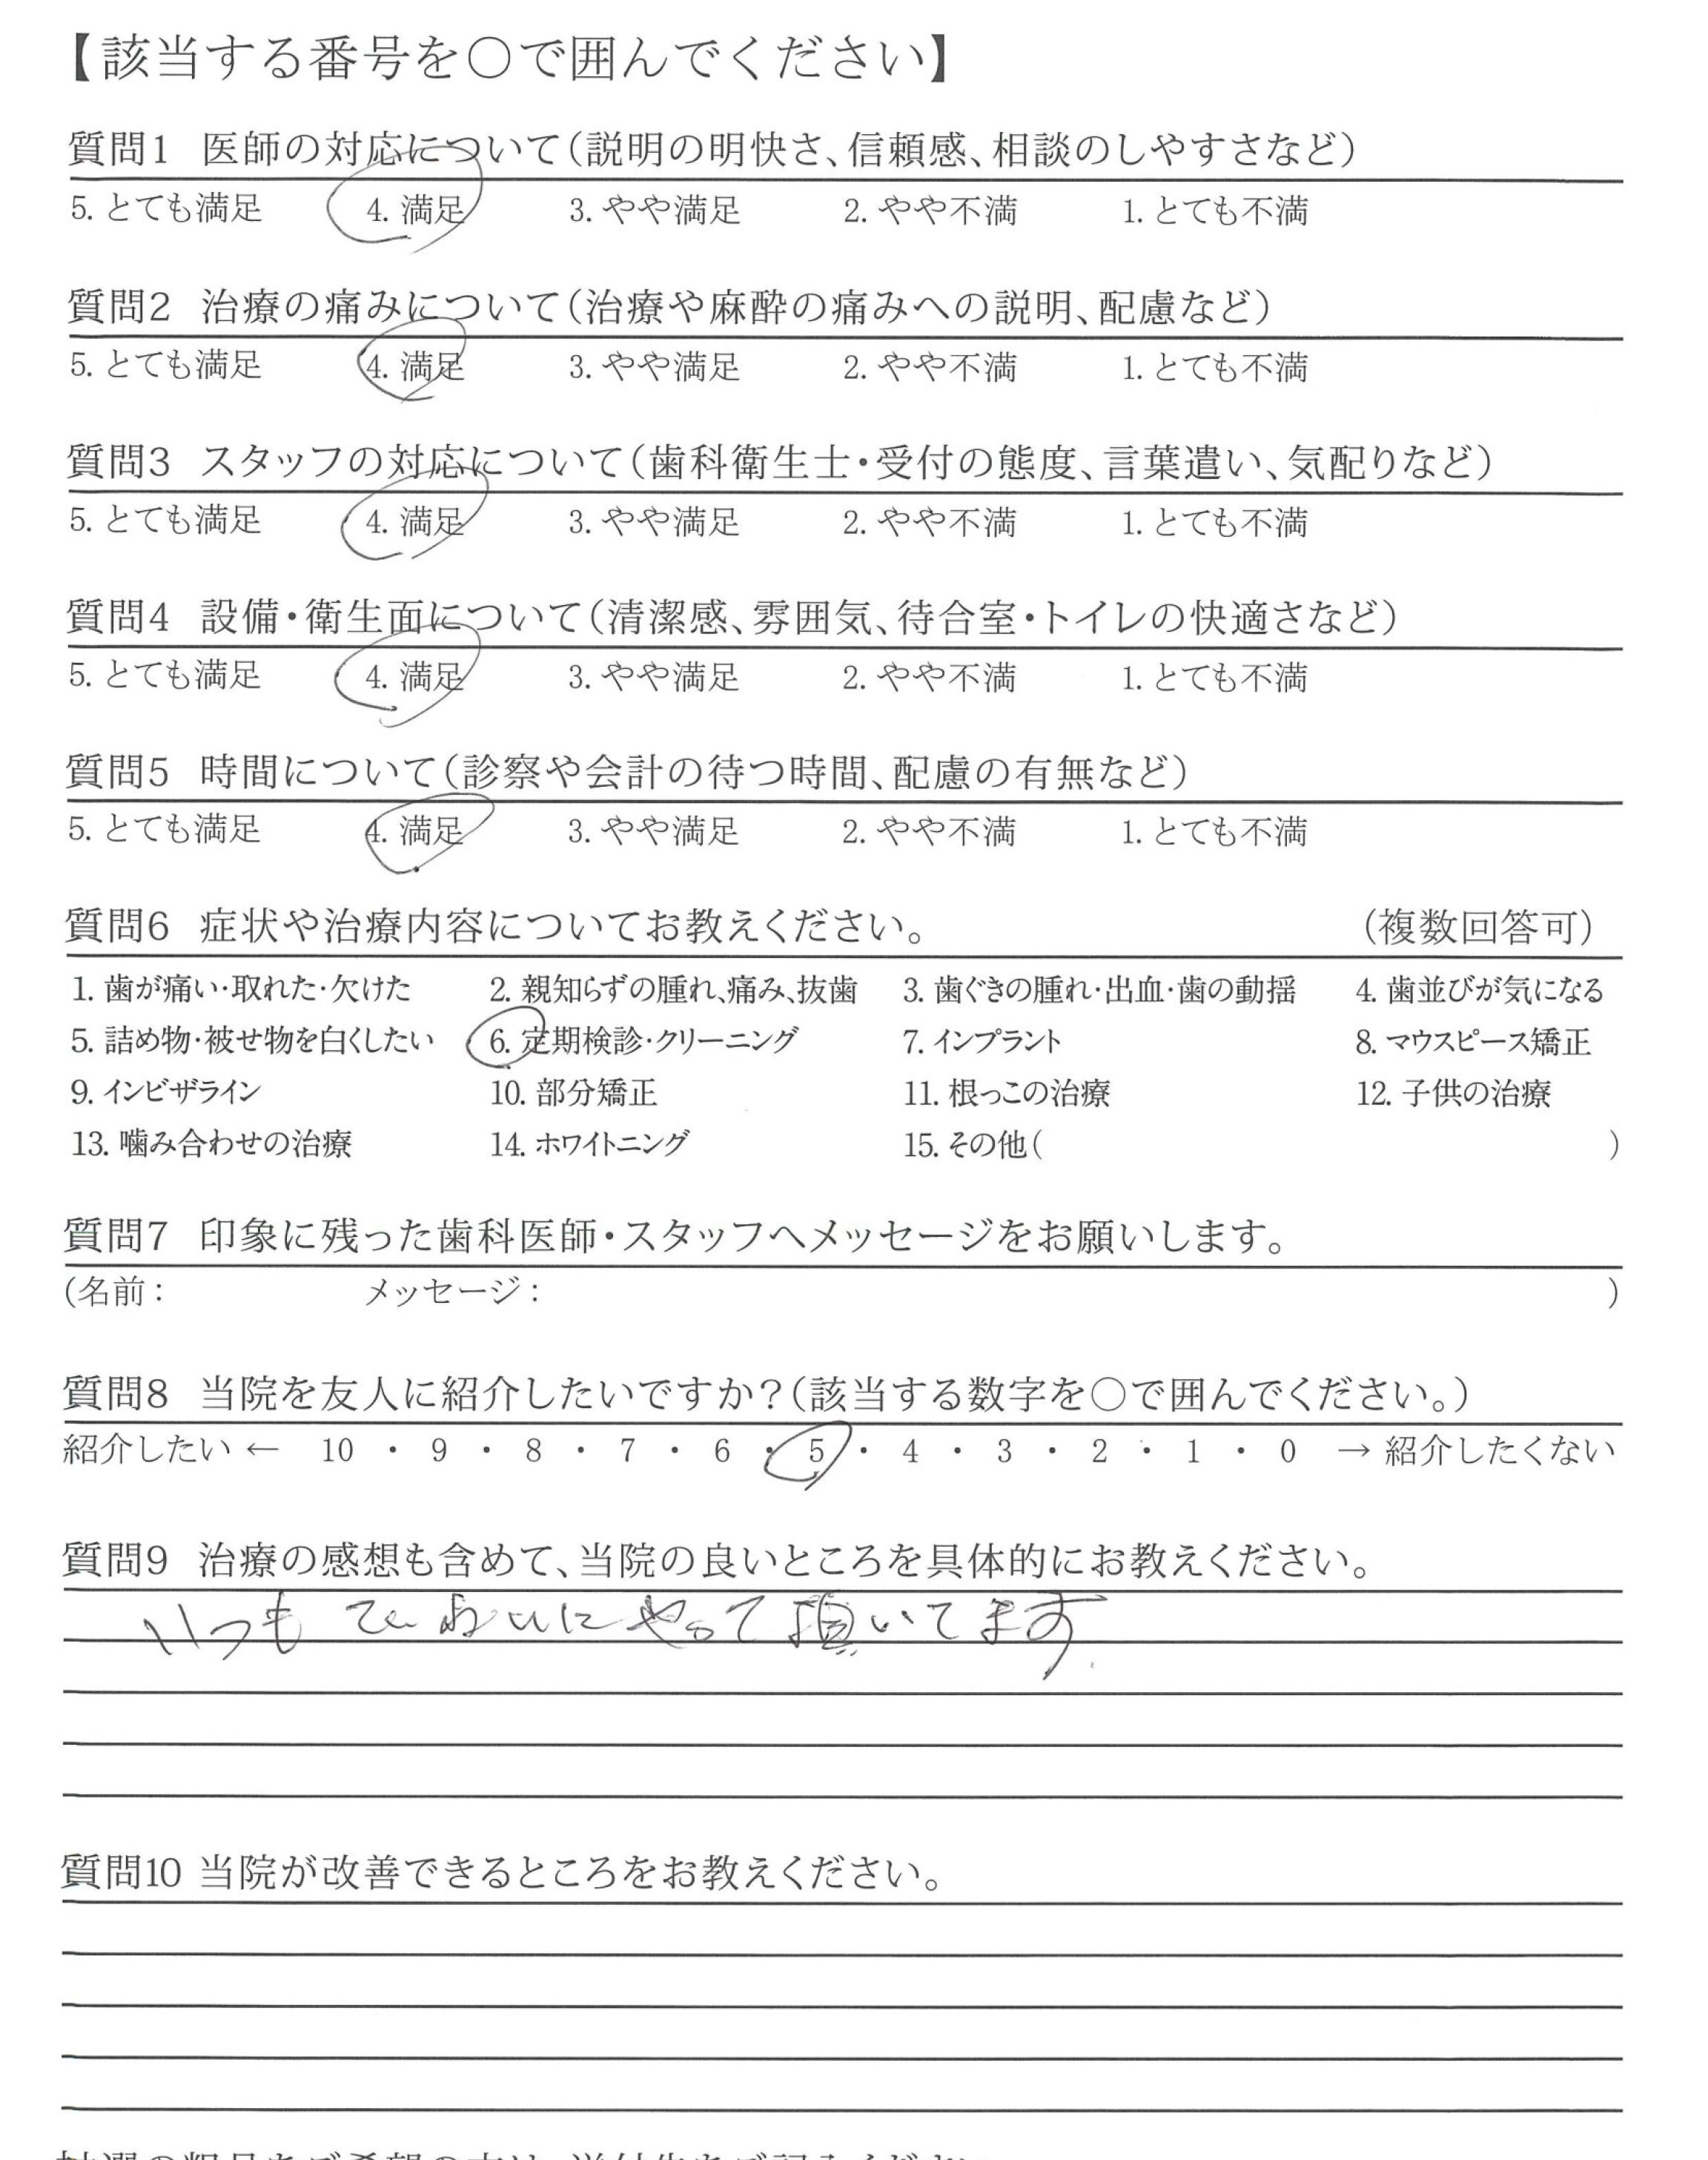 【該当する番号を○で囲んでください】
質問1 医師の対応について（説明の明快さ、信頼感、相談のしやすさなど）
5. とても満足 4. 満足 3. やや満足 2. やや不満 1. とても不満
質問2 治療の痛みについて（治療や麻酔の痛みへの説明、配慮など）
5. とても満足 4. 満足 3. やや満足 2. やや不満 1. とても不満
質問3 スタッフの対応について（歯科衛生士・受付の態度、言葉遣い、気配りなど）
5. とても満足 4. 満足 3. やや満足 2. やや不満 1. とても不満
質問4 設備・衛生面について（清潔感、雰囲気、待合室・トイレの快適さなど）
5. とても満足 4. 満足 3. やや満足 2. やや不満 1. とても不満
質問5 時間について（診察や会計の待つ時間、配慮の有無など）
5. とても満足 4. 満足 3. やや満足 2. やや不満 1. とても不満
質問6 症状や治療内容についてお教えください。 （複数回答可）
1. 歯が痛い・取れた・欠けた 2. 親知らずの腫れ、痛み、抜歯 3. 歯ぐきの腫れ・出血・歯の動揺 4. 歯並びが気になる
5. 詰め物・被せ物を白くしたい 6. 定期検診・クリーニング 7. インプラント 8. マウスピース矯正
9. インビザライン 10. 部分矯正 11. 根っこの治療 12. 子供の治療
13. 噛み合わせの治療 14. ホワイトニング 15. その他（ ）
質問7 印象に残った歯科医師・スタッフへメッセージをお願いします。
（名前： メッセージ： ）
質問8 当院を友人に紹介したいですか？（該当する数字を○で囲んでください。）
紹介したい ← 10 ・ 9 ・ 8 ・ 7 ・ 6 ・ 5 ・ 4 ・ 3 ・ 2 ・ 1 ・ 0 → 紹介したくない
質問9 治療の感想も含めて、当院の良いところを具体的にお教えください。
いつも ていねいにやって頂いてます
質問10 当院が改善できるところをお教えください。